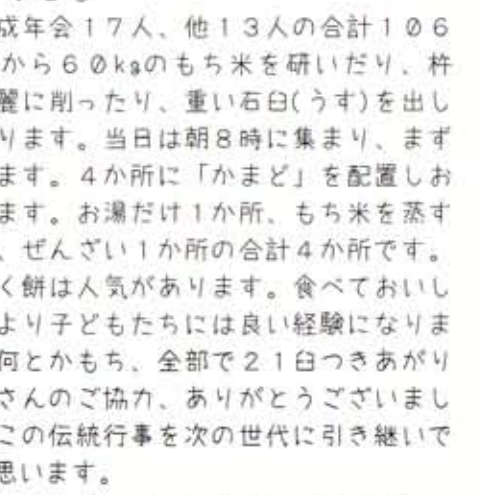 成年会１７人、他１３人の合計１０６
から６０kgのもち米を研いだり、杵
麗に削ったり、重い石臼(うす)を出し
ります。当日は朝８時に集まり、まず
ます。４か所に「かまど」を配置しお
ます。お湯だけ１か所、もち米を蒸す
、ぜんざい１か所の合計４か所です。
く餅は人気があります。食べておいし
より子どもたちには良い経験になりま
何とかもち、全部で２１臼つきあがり
さんのご協力、ありがとうございまし
この伝統行事を次の世代に引き継いで
思います。